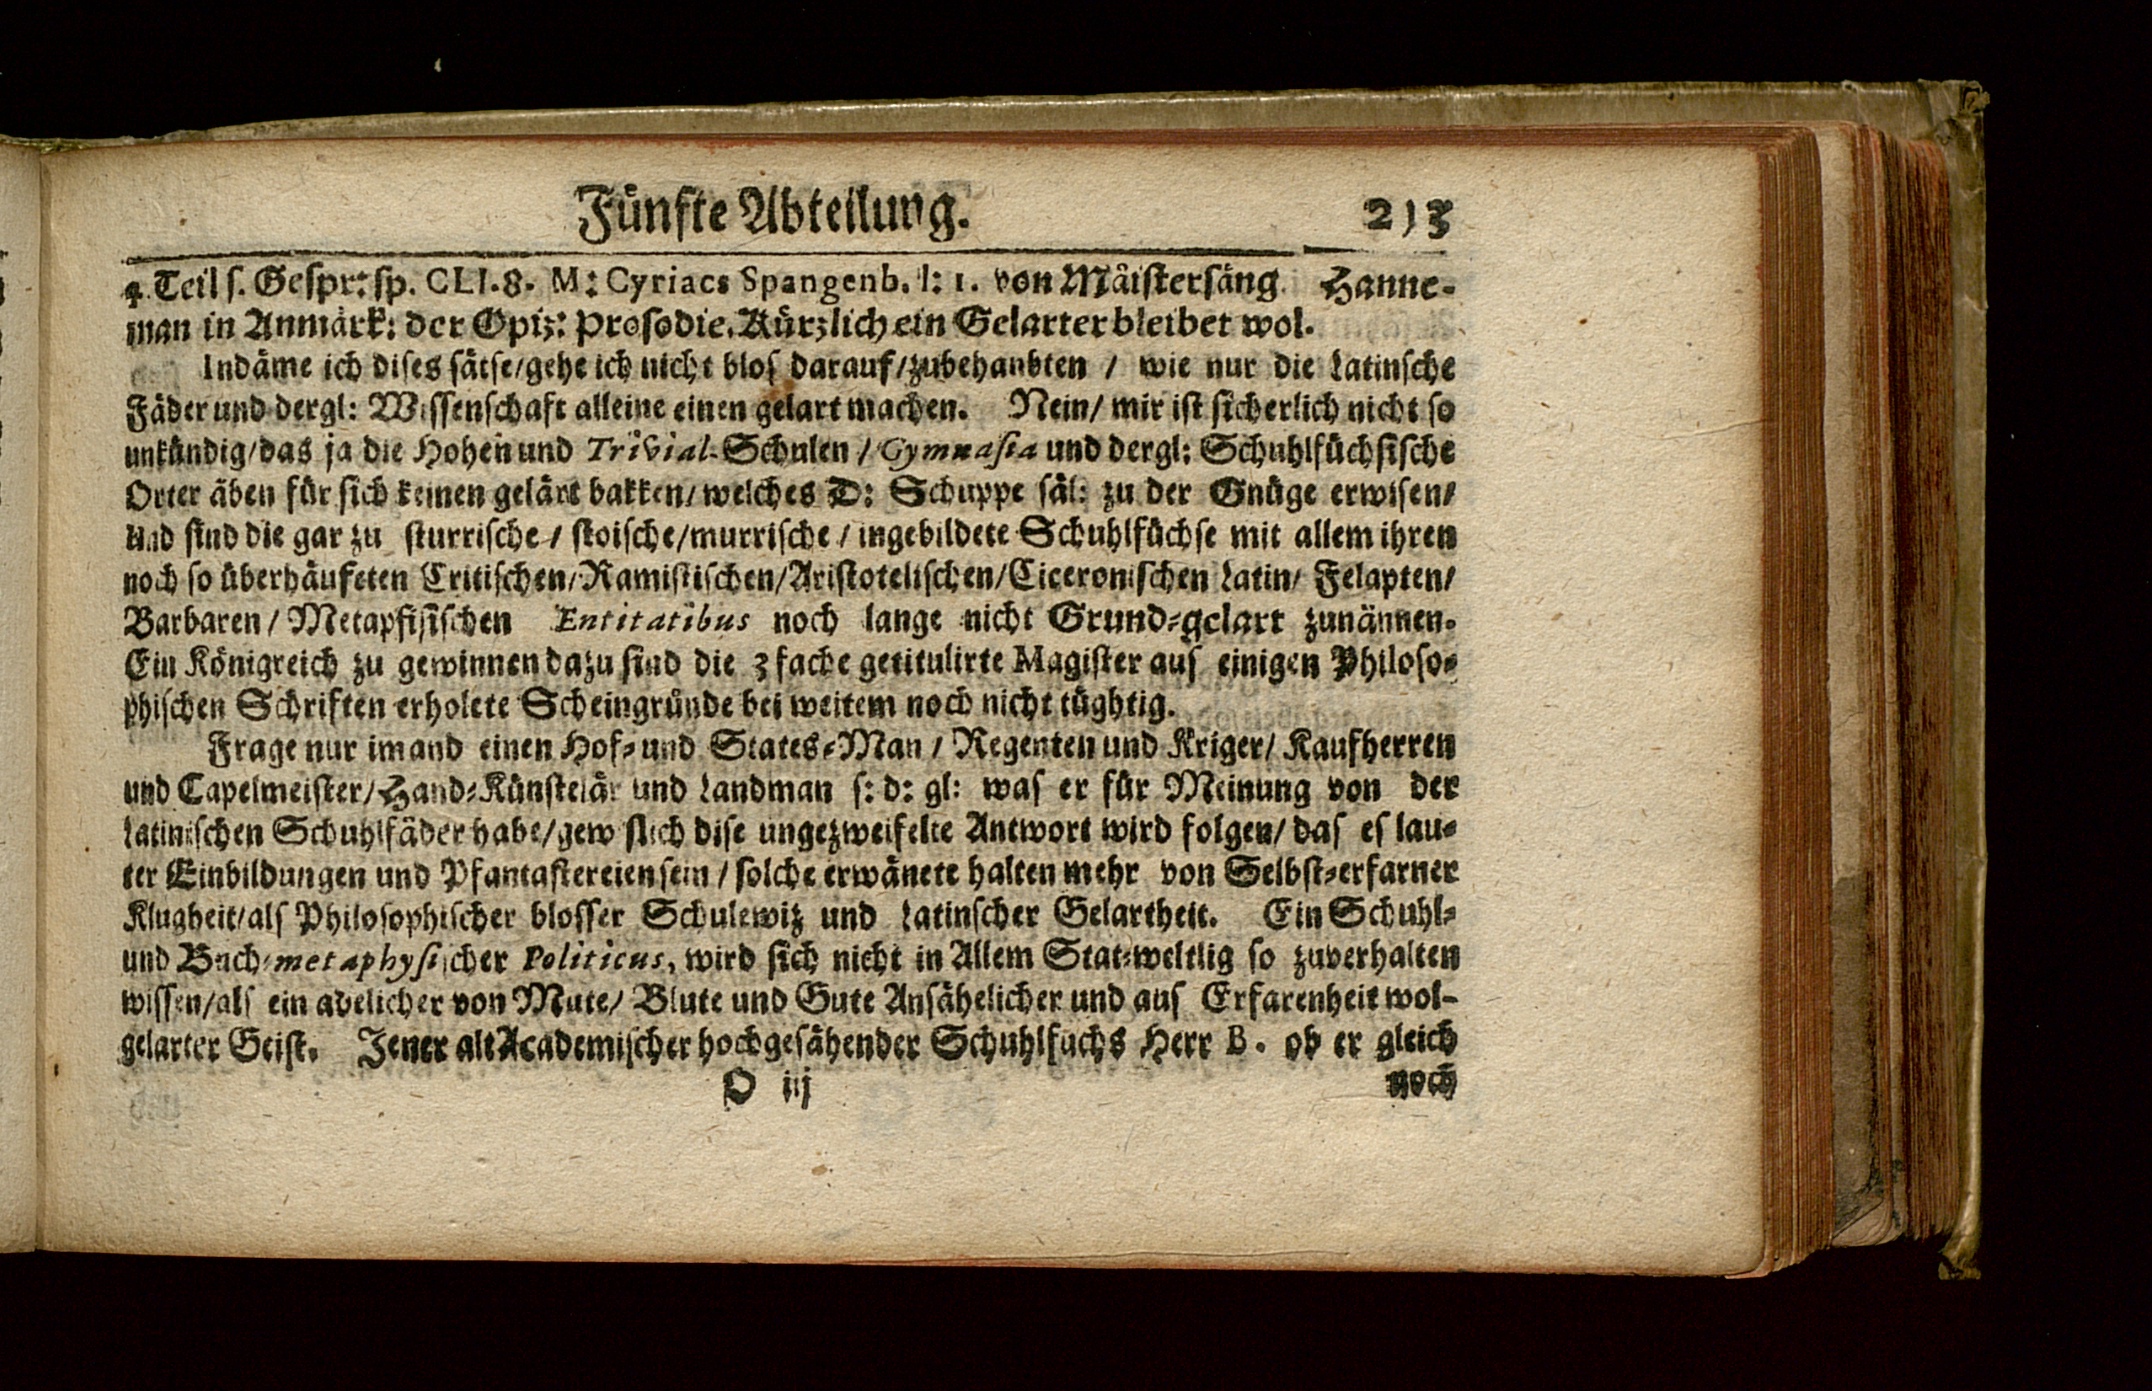 Fünfte Abteilung. 213
4. Teil s. Gespr: sp. CLI. 8. M: Cyriacs Spangenb. l: 1. von Mäistersäng. Hanne-
man in Anmärk: der Opiz: Prosodie. Kürzlich ein Gelarter bleibet wol.
Indäme ich dises sätse/gehe ich nicht blos darauf/zubehaubten / wie nur die Latinsche
Fäder und dergl: Wissenschaft alleine einen gelart machen. Nein/ mir ist sicherlich nicht so
unkündig/das ja die Hohen und Trivial-Schulen / Gymnasia und dergl: Schuhlfüchsische
Orter äben für sich keinen gelärt bakken/welches D: Schuppe säl: zu der Gnüge erwisen/
Und sind die gar zu sturrische / stoische/murrische / ingebildete Schuhlfüchse mit allem ihren
noch so überhäufeten Critischen/Ramistischen/Aristotelischen/Ciceronischen Latin/ Felapten/
Barbaren / Metapfisischen Entitatibus noch lange nicht Grund-gelart zunännen.
Ein Königreich zu gewinnen dazu sind die 3 fache getitulirte Magister aus einigen Philoso-
phischen Schriften erholete Scheingründe bei weitem noch nicht tüghtig.
Frage nur imand einen Hof- und States-Man / Regenten und Kriger/ Kaufherren
und Capelmeister/Hand-Künstelär und Landman s: d: gl: was er für Meinung von der
Latinischen Schuhlfäder habe/gewislich dise ungezweifelte Antwort wird folgen/ das es lau-
ter Einbildungen und Pfantastereien sein / solche erwänete halten mehr von Selbst-erfarner
Klugheit/als Philosophischer blosser Schulewiz und Latinscher Gelartheit. Ein Schuhl-
und Buch-metaphysischer Politicus, wird sich nicht in Allem Stat-weltlig so zuverhalten
wissen/als ein adelicher von Mute/ Blute und Gute Ansähelicher und aus Erfarenheit wol-
gelarter Geist. Jener alt Academischer hochgesähender Schuhlfuchs Herr B. ob er gleich
O iij noch